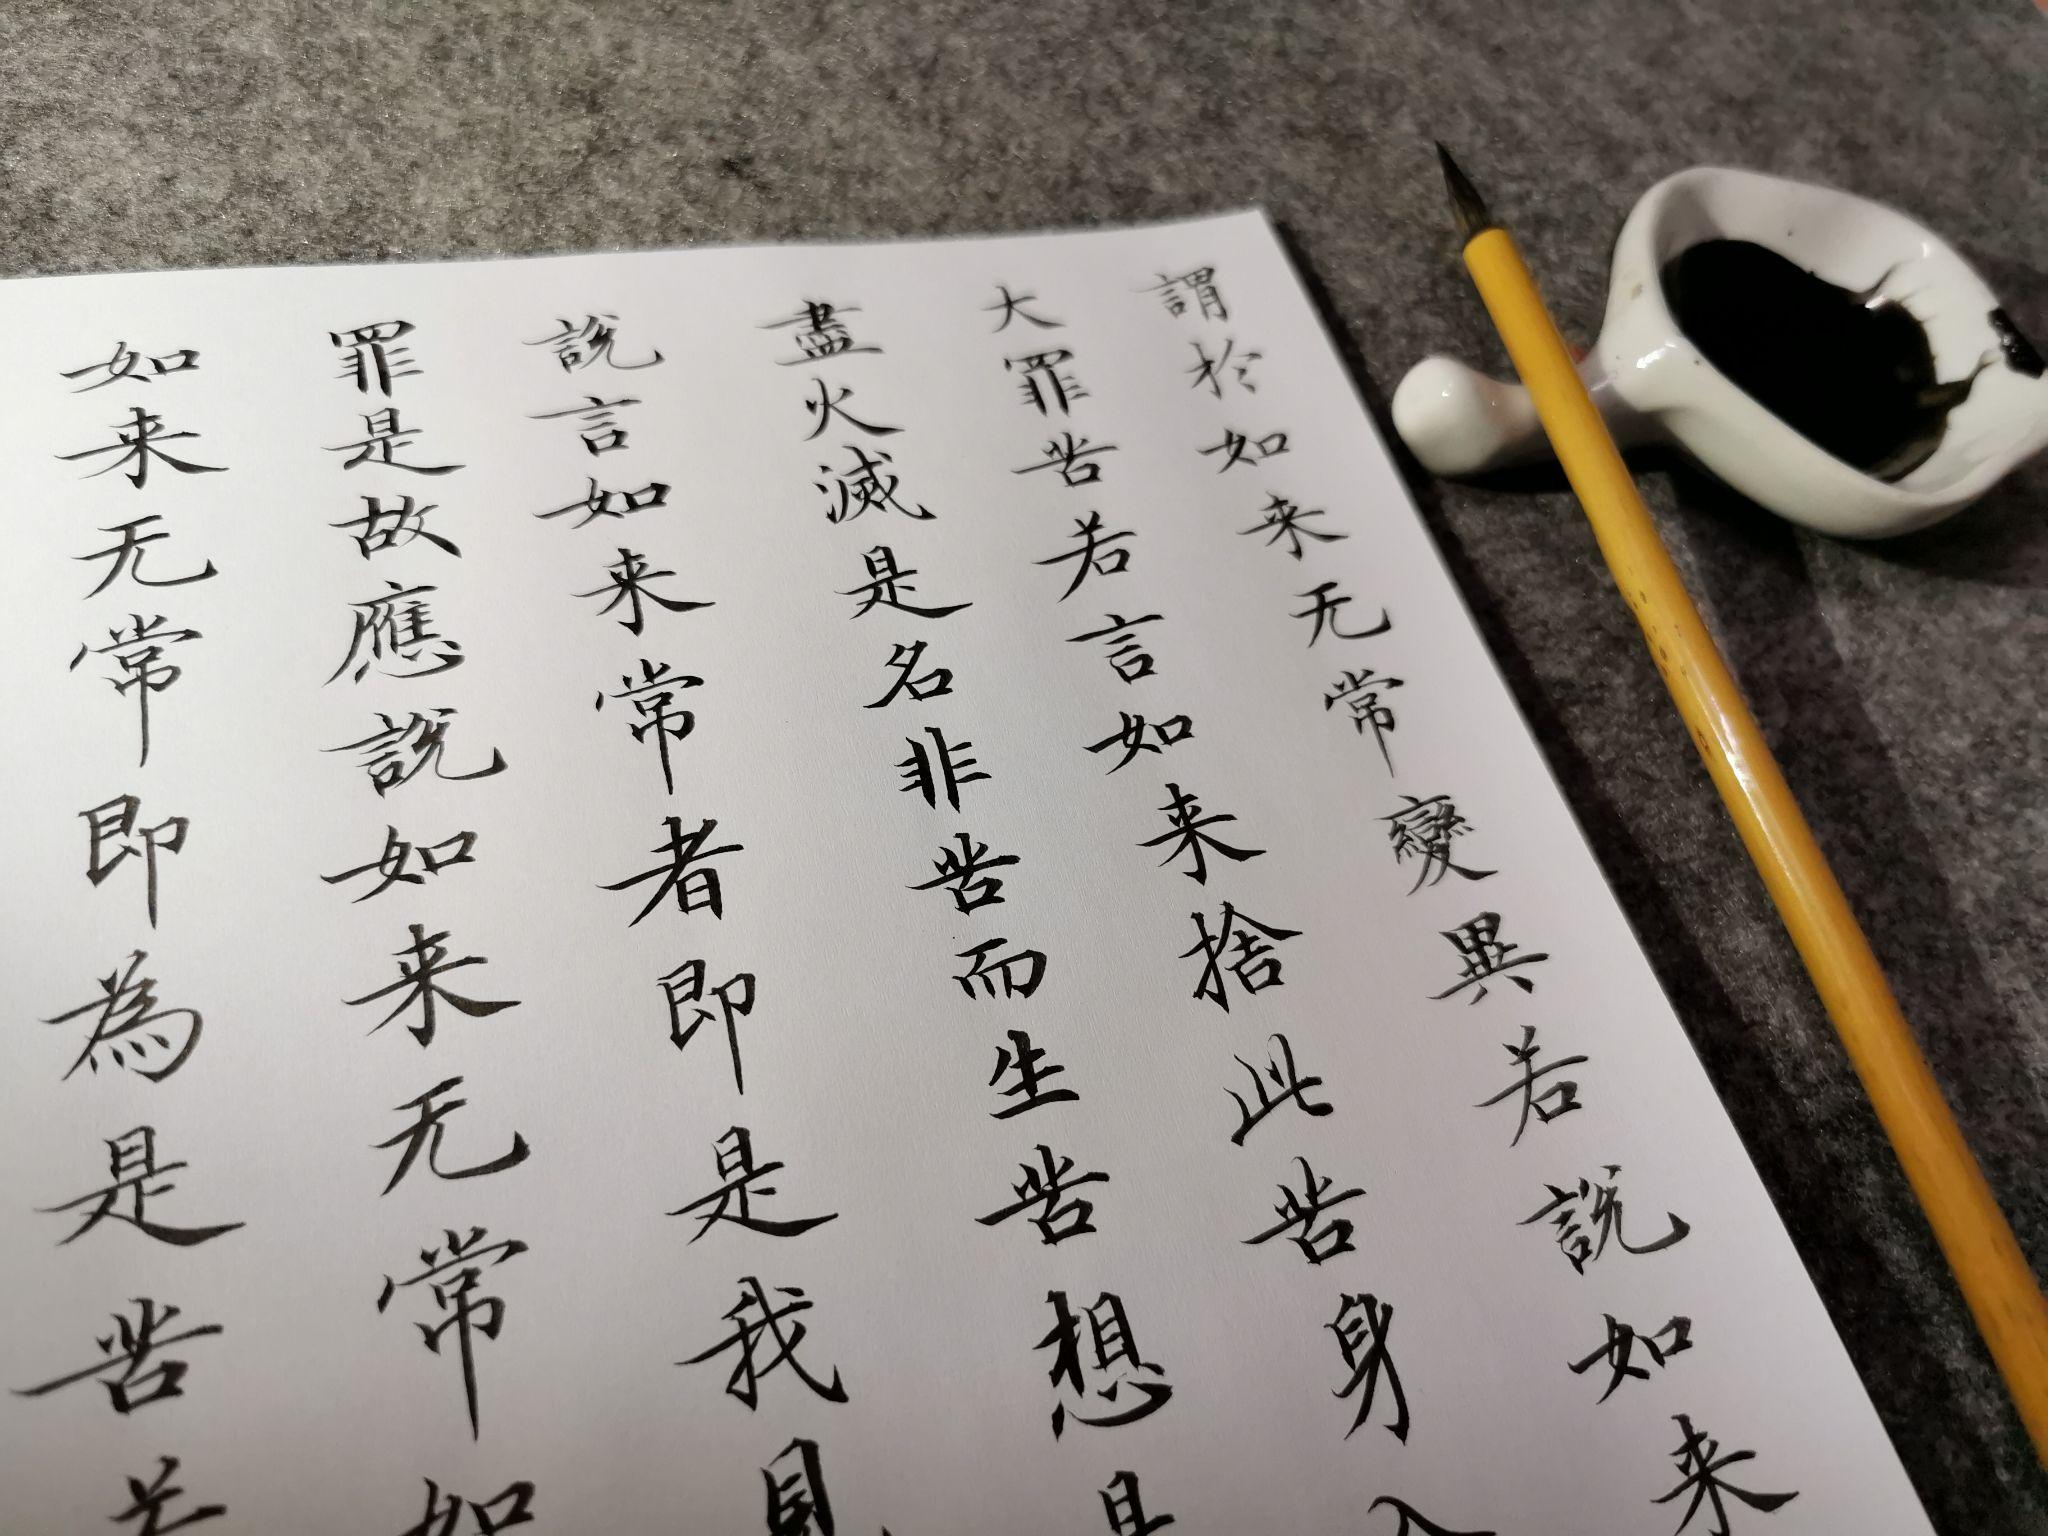 謂扵如来无常變異若說如来
大罪苦若言如来捨此苦身入
盡火滅是名非苦而生苦想是
說言如来常者即是我見
罪是故應說如来无常如
如来无常即為是苦若